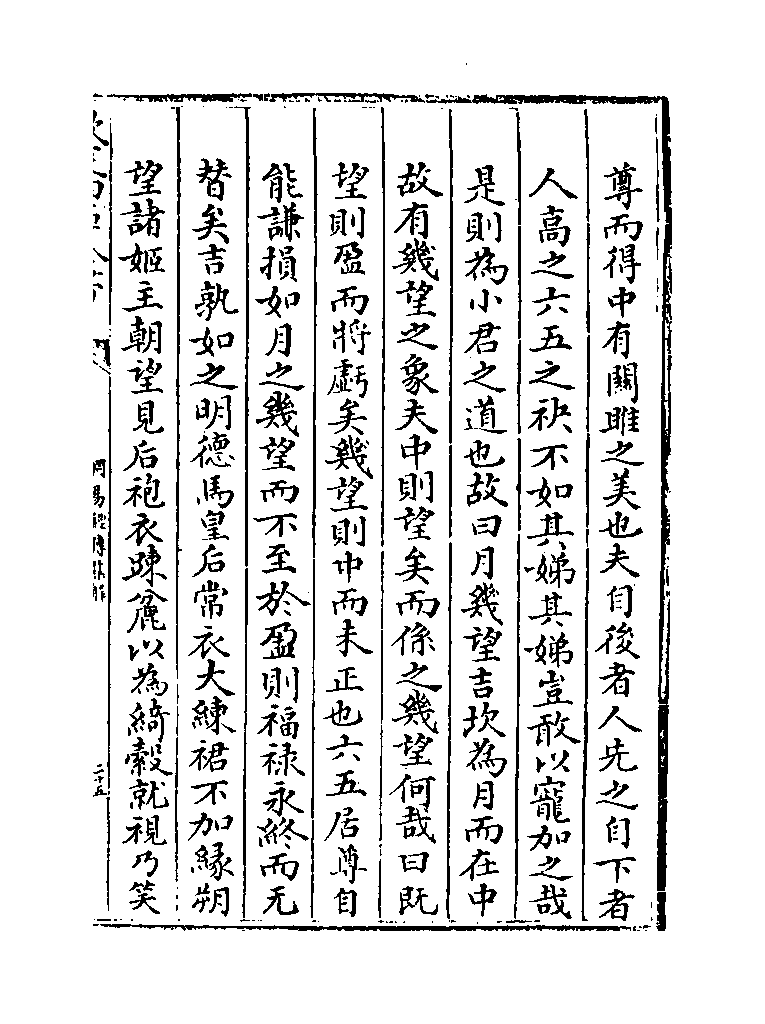 尊而得中有關雎之美也夫自後者人先之自下者
人高之六五之袂不如其娣其娣豈敢以寵加之哉
是則為小君之道也故曰月幾望吉坎為月而在中
故有幾望之象夫中則望矣而係之幾望何哉曰既
望則盈而將虧矣幾望則中而未正也六五居尊自
能謙損如月之幾望而不至於盈則福禄永終而无
替矣吉孰如之明德馬皇后常衣大練裙不加緣朔
望諸姬主朝望見后袍衣踈麄以為綺縠就視乃笑
周易經傳集解
二十五